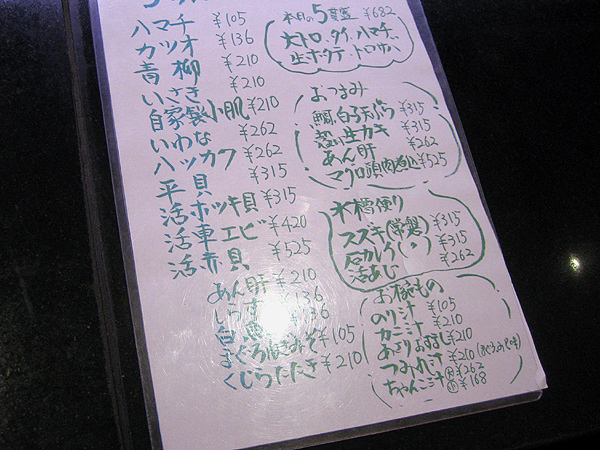 ハマチ ¥105
カツオ ¥136
青柳 ¥210
いさき ¥210
自家製小肌 ¥210
いわな ¥262
ハッカク ¥262
平貝 ¥315
活ホッキ貝 ¥315
活車エビ ¥420
活赤貝 ¥525
あん肝 ¥210
いらす ¥136
白魚 ¥136
まぐろねぎみそ ¥105
くじらたたき ¥210
本日の5貫盛 ¥682
大トロ、タイ、ハマチ、
生ホタテ、トロサバ
おつまみ
鯛白子天ぷら ¥315
殻い生カキ ¥315
あん肝 ¥262
マグロ頭肉煮込 ¥525
水槽便り
スズキ(常磐) ¥315
石カレイ(〃) ¥315
活あじ ¥262
お椀もの
のり汁 ¥105
カニ汁 ¥210
あさりおすまし ¥210
つみれ汁 ¥210
ちゃんこ汁 大¥262
小¥168